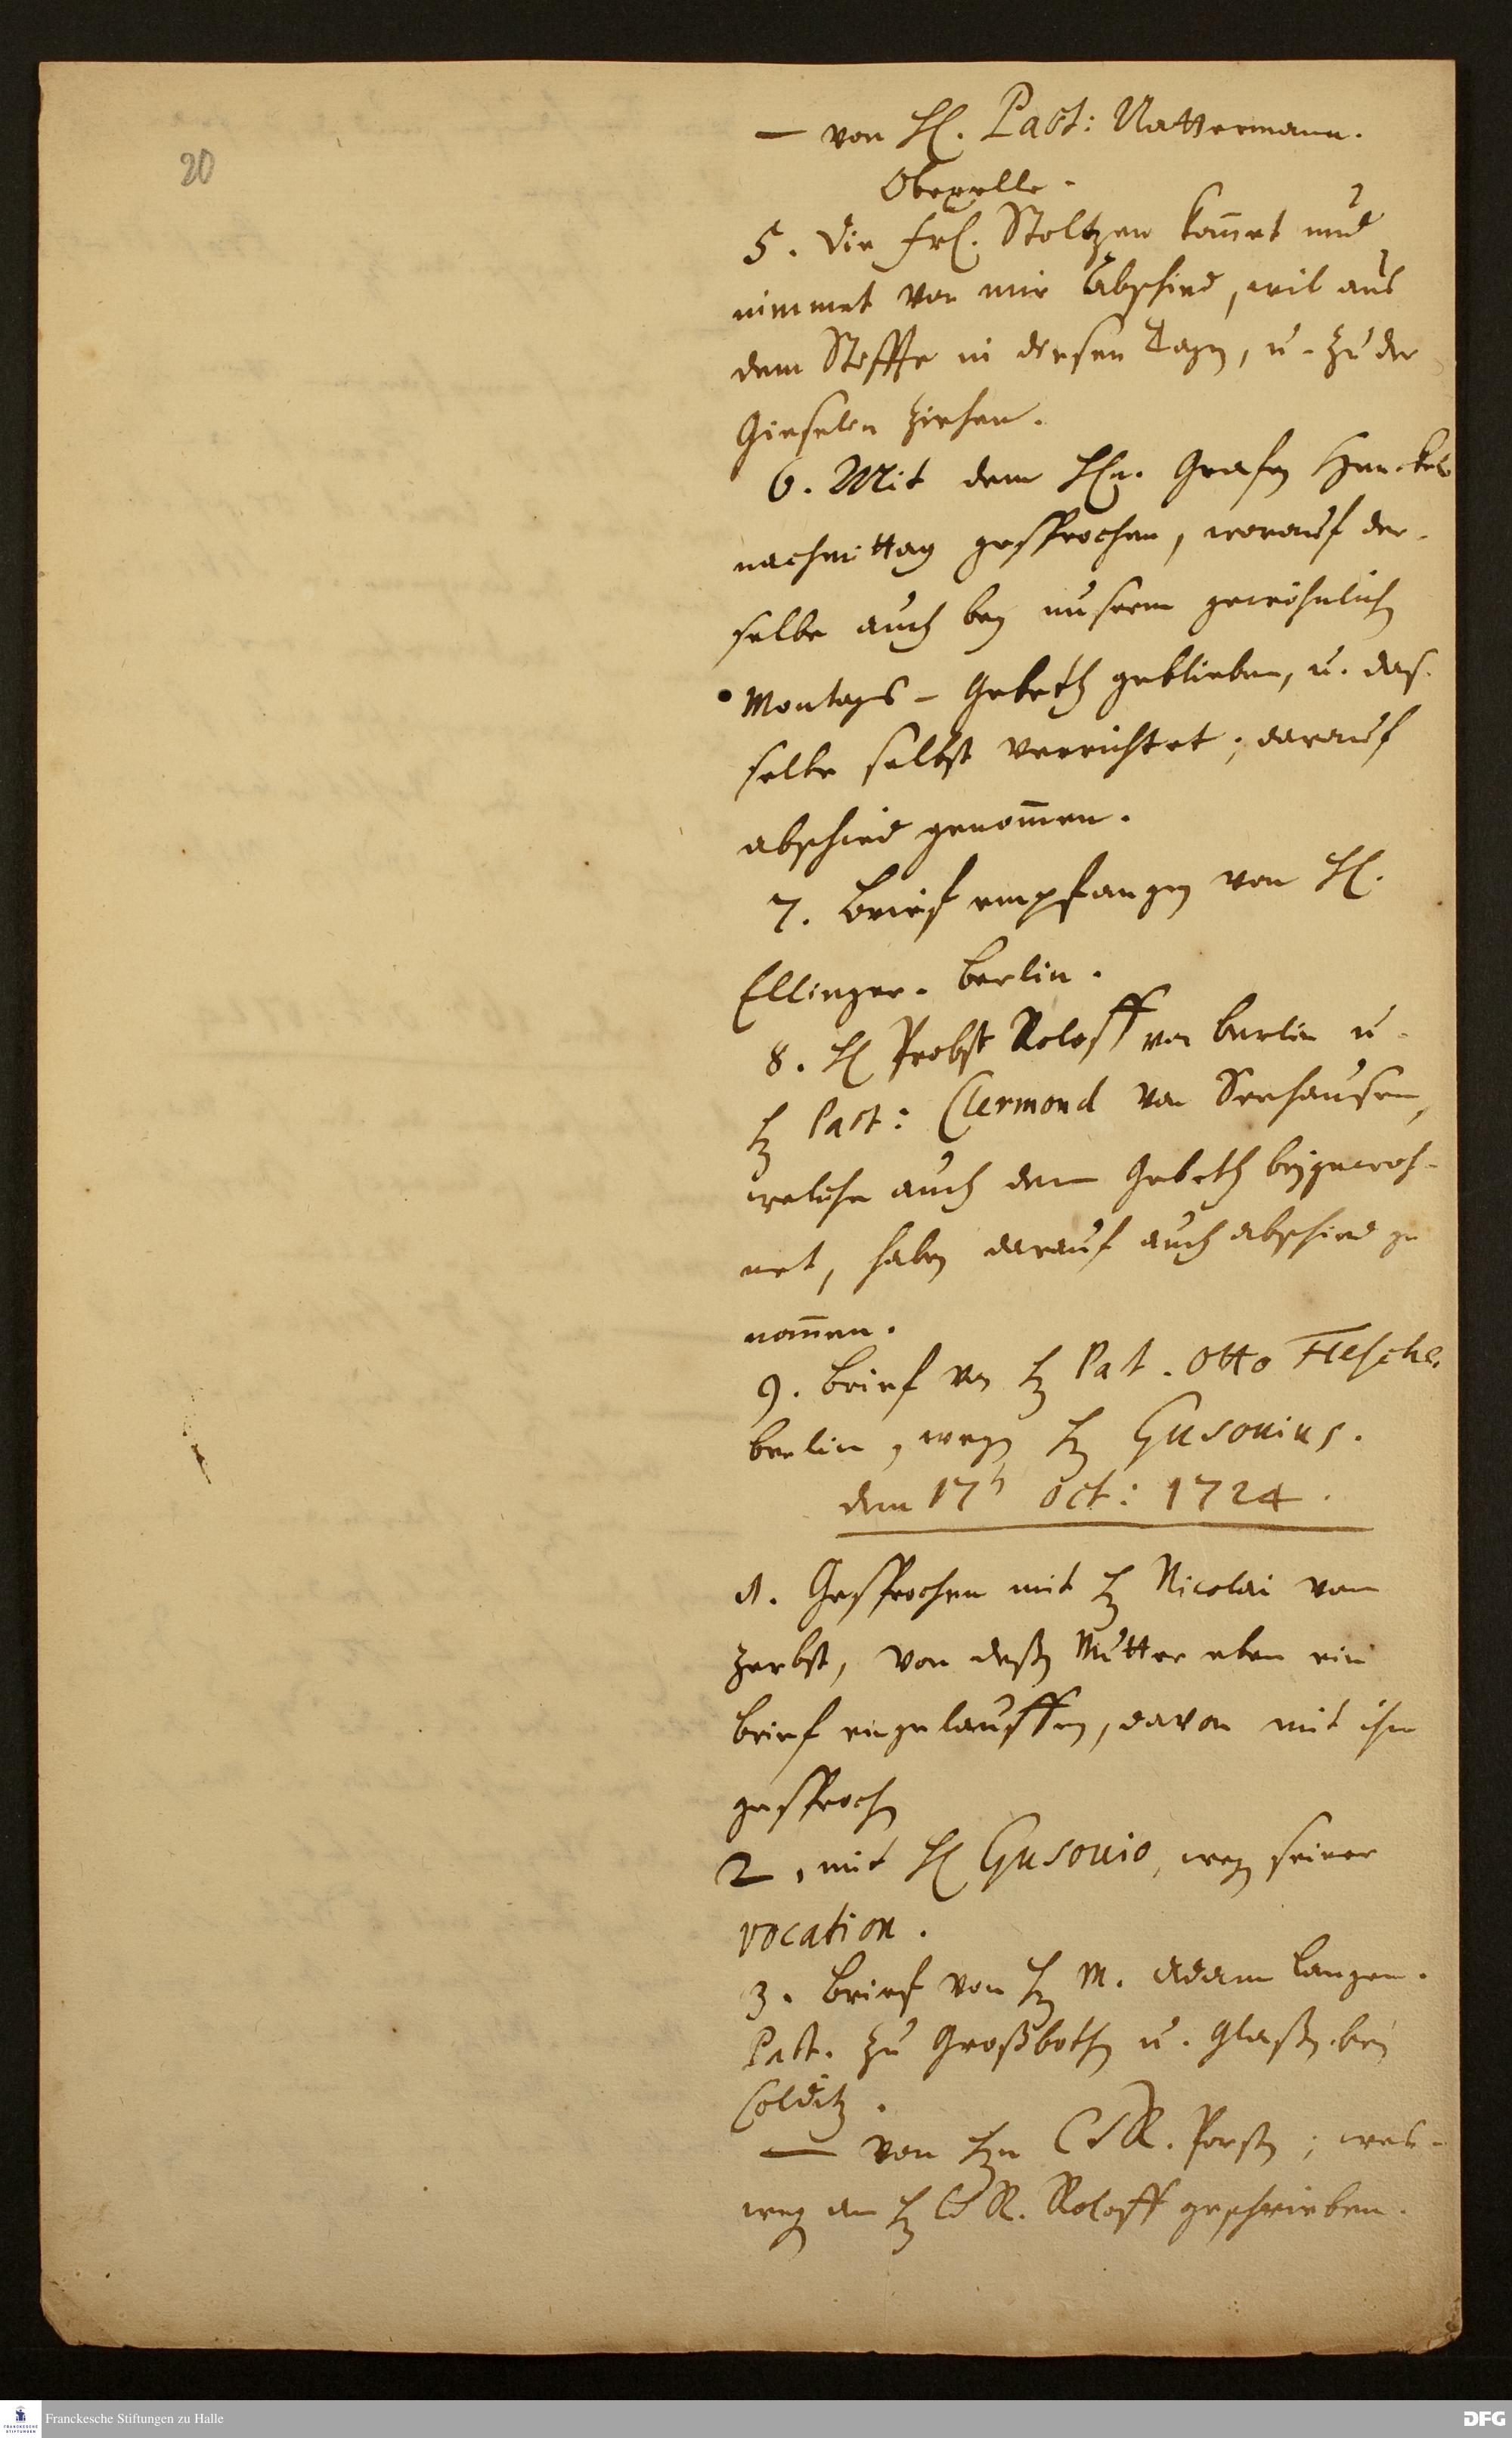 20
— von H. Past: Nattermann.
Oberxelle.
5. Die Frl. Stoltzen kom̄et und
nimmet von mir Abschied, wil aus
dem Stiffte in diesen Tagen, u. zu der
Gieselen ziehen.
6. Mit dem Hn. Grafen Henckel
nachmittag gesprochen, worauf der-
selbe auch bey unserm gewöhnlich
Montags-Gebeth geblieben, u. das-
selbe selbst verrichtet; darauf
abschied genom̄en.
7. Brief empfangen von H.
Ellinger. Berlin.
8. H Probst Roloff von Berlin u.
H Past: Clermond von Seehausen,
welche auch dem Gebeth beygewoh-
net, haben darauf auch abschied ge
nom̄en.
9. Brief von H Past. Otto
Berlin, wegen H Gusovius.
den 17t Oct: 1724.
1. Gesprochen mit H Nicolai von
Zerbst, von deßen Mutter eben ein
Brief eingelauffen, davon mit ihm
gesprochen
2, mit H Gusovio, wegen seiner
vocation.
3. Brief von H M. Adam Langen.
Past. zu Großbothen u. Glasten bey
Colditz.
— von Hn C R. Porsten; wes-
wegen an H C R. Roloff geschrieben.
Franckesche Stiftungen zu Halle
FRANCKESCHE
STIFTUNGEN
DFG